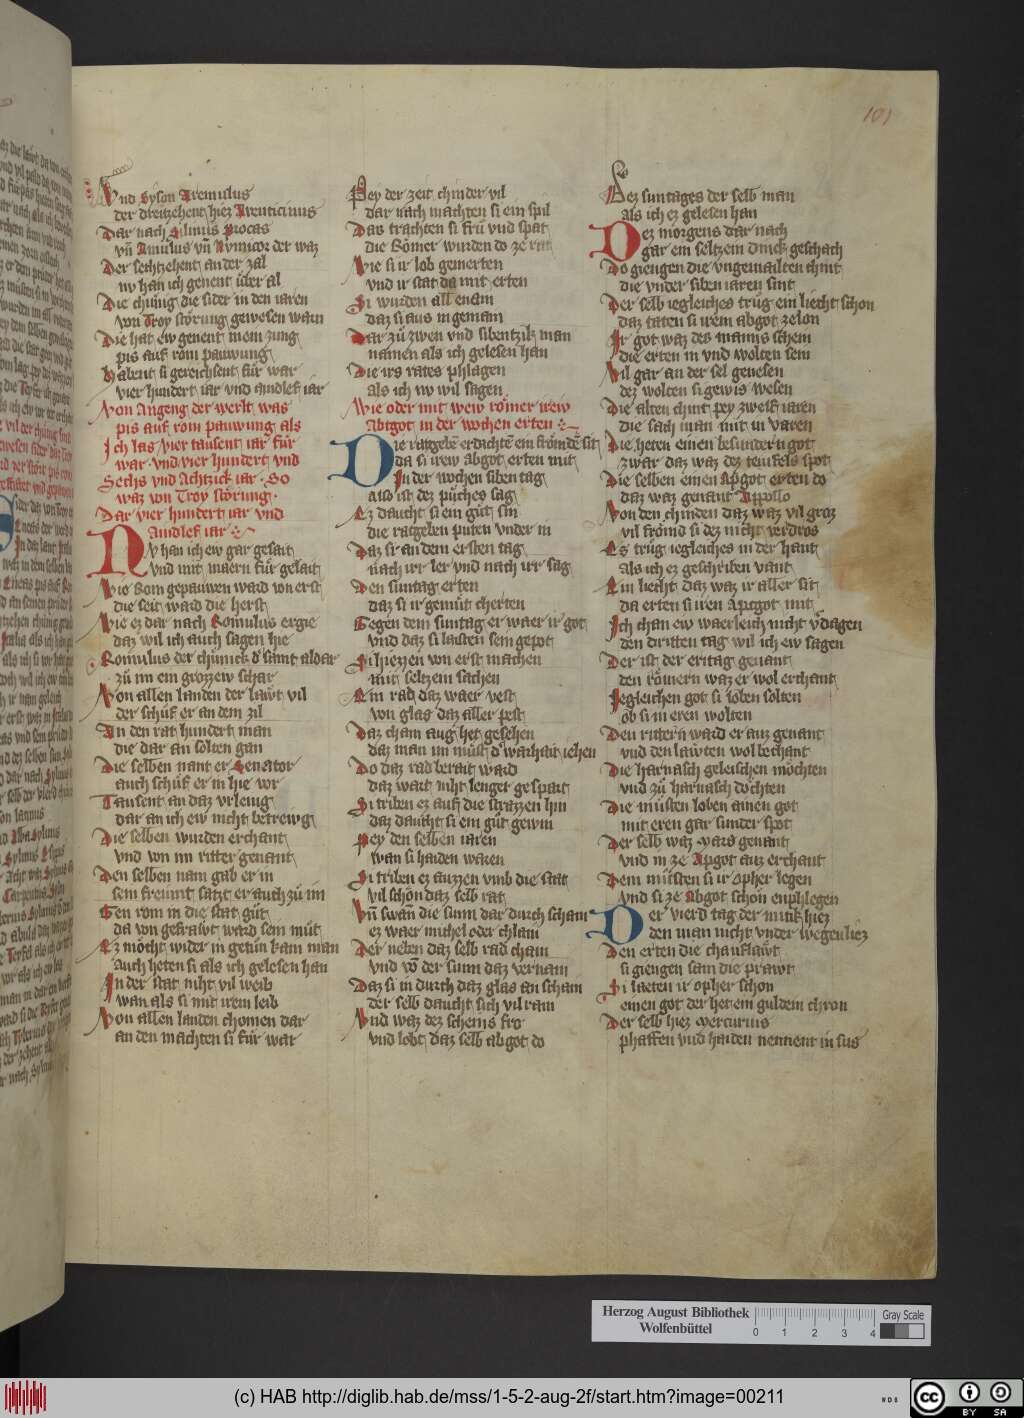 101
Vnd Syson Tremulus
der dreutzehent hiez Auenticinus
Dar nach Silinus Procas
vn Amulus vn Nymicor der waz
Der sechtzehent an der zal
nv han ich genent uber al
Die chunig die sider in den iaren
von Troy storung gewesen warn
Die hat ew genent mein zung
pis auf rom pawung
Habent si gereichsent fur war
vier hundert iar vnd aindlef iar
Von Angeng der werlt was
pis auf rom pawung als
Ich las vier tausent iar fur
war vnd vier hundert vnd
Sechs vnd Achtzick iar So
waz von Troy storung
Dar vier hundert iar vnd
Aindlef iar
Nv han ich ew gar gesait
vnd mit maern fur gelait
Wie Rom gepauwen ward von erst
die seit ward die herst
Wie ez dar nach Romulus ergie
daz wil ich auch sagen hie
Romulus der chunick d samt aldar
zu im ein grozzew schar
Von allen landen der lawt vil
der schuf er an dem zil
An den rat hundert man
die dar an solten gan
Die selben nant er Senator
auch schuf er in hie vor
Tausent an daz vrleug
dar an ich ew nicht betrewg
Die selben wurden erchant
vnd von im ritter genant
Den selben nam gab er in
sein freunt satzt er auch zu im
Gen rom in die stat gut
da von gefrawt ward sein mut
Ez mocht wider in getun kam man
Auch heten si als ich gelesen han
In der stat niht vil weib
wan als si mit irem leib
Von allen landen chomen dar
an den machten si fur war
Pey der zeit chinder vil
dar nach machten si ein spil
Daz trachten si fru vnd spat
die Romer wurden do ze rat
Wie si ir lob gemerten
vnd ir stat da mit erten
Si wurden all enain
daz si aus in gemain
Dar zu zwen vnd sibentzik man
namen als ich gelesen han
Die irs rates phlagen
als ich nv wil sagen
Wie oder mit wew romer irew
Abtgot in der wochen erten
Die ratgebe erdachte ein fromde sit
da si irew abgot erten mit
In der wochen siben tag
also ist dez puches sag
Ez daucht si ein gut sin
die ratgeben puten vnder in
Daz si an dem ersten tag
nach irr ler vnd nach irr sag
Den suntag erten
daz si ir gemut cherten
Gegen dem suntag er waer ir got
vnd daz si laisten sein gepot
Si hiezzen von erst machen
mit seltzein sachen
Ein rad daz waer vest
von glas daz aller pest
Daz cham aug het gesehen
daz man im must d warhait iehen
Do daz rad berait ward
daz wart niht lenger gespart
Si triben ez auf die strazzen hin
daz daucht si ein gut gewin
Pey den selben iaren
wan si haiden waren
Si triben ez auzzen vmb die stat
vil schon daz selb rat
Vn swan die sunn dar durch schain
ez waer michel oder chlain
Der neben daz selb rad cham
vnd vo der sunn daz vernam
Daz si in durch daz glas an schain
der selb daucht sich vil rain
Vnd waz dez scheins fro
vnd lobt daz selb abgot do
Dez suntages der selb man
als ich ez gelesen han
Dez morgens dar nach
gar ein seltzein dinck geschach
Do giengen die vngemailten chint
die vnder siben iaren sint
Der selb iegleiches trug ein liecht schon
daz taten si irem abgot ze lon
Ir got waz des manns schein
die erten in vnd wolten sein
Vil gar an der sel genesen
dez wolten si gewis wesen
Die alten chint pey zwelf iaren
die sach man mit in varen
Die heten einen besundern got
zwar daz waz dez teufels spot
Die selben einen Apgot erten do
daz waz genant Appollo
Von den chinden daz waz vil groz
vil fromd si dez nicht verdros
Es trug iegleiches in der hant
als ich ez geschriben vant
Ein liecht daz waz ir aller sit
da erten si iren Aptgot mit
Ich chan ew waerleich nicht vdagen
den dritten tag wil ich ew sagen
Der ist der eritag genant
den romern waz er wol erchant
Iegleichen got si loben solten
ob si in eren wolten
Den rittern ward er auz genant
vnd den lawten wol bechant
Die harnasch gelaischen mochten
vnd zu harnasch dochten
Die musten loben ainen got
mit eren gar sunder spot
Der selb waz Mars genant
vnd in ze Apgot auz erchant
Dem musten si ir opher legen
vnd si ze Abgot schon enphlegen
Der vierd tag der mitik hiez
den man nicht vnder wegen liez
Den erten die chauflawt
si giengen sam die prawt
Si laeten ir opher schon
einen got der het ein guldein chron
Der selb hiez Mercurius
phaffen vnd haiden nennent in sus
Herzog August Bibliothek
Wolfenbüttel
0 1 2 3 4
Gray Scale
(c) HAB http://diglib.hab.de/mss/1-5-2-aug-2f/start.htm?image=00211
WDB
cc BY SA